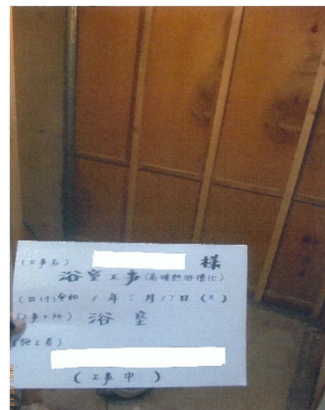 (工事名) 様
浴室工事(高断熱浴槽化)
(日付)令和 1年 5月 17日 ( )
(工事ヶ所) 浴 室
(施工者)
(工事中)